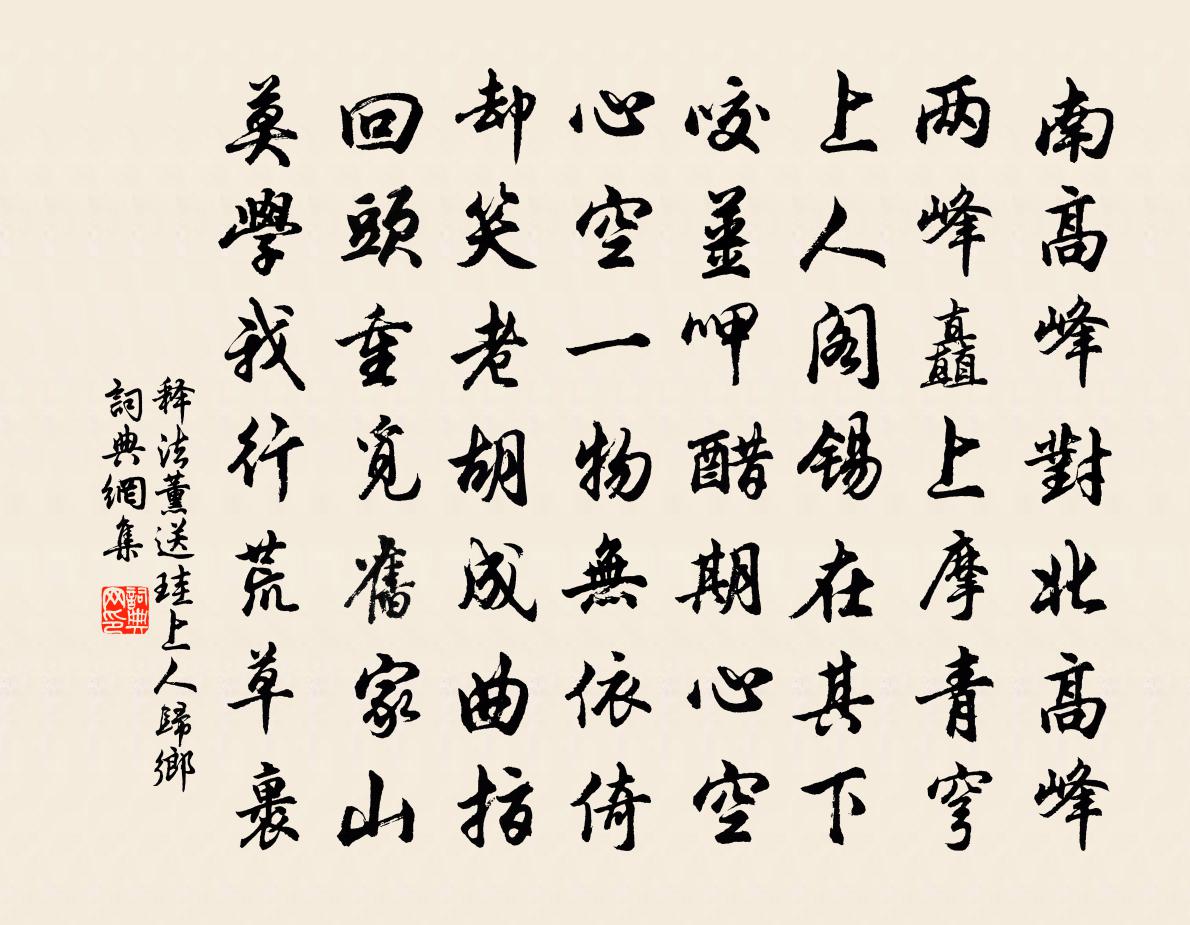 南高峰對北高峰
两峰矗上摩青穹
上人阁锡在其下
咬薑呷醋期心空
心空一物無依倚
却笑老胡成曲指
回頭重覓舊家山
莫學我行荒草裏
释法薰送珪上人歸鄉
詞典網集
詞典
网印